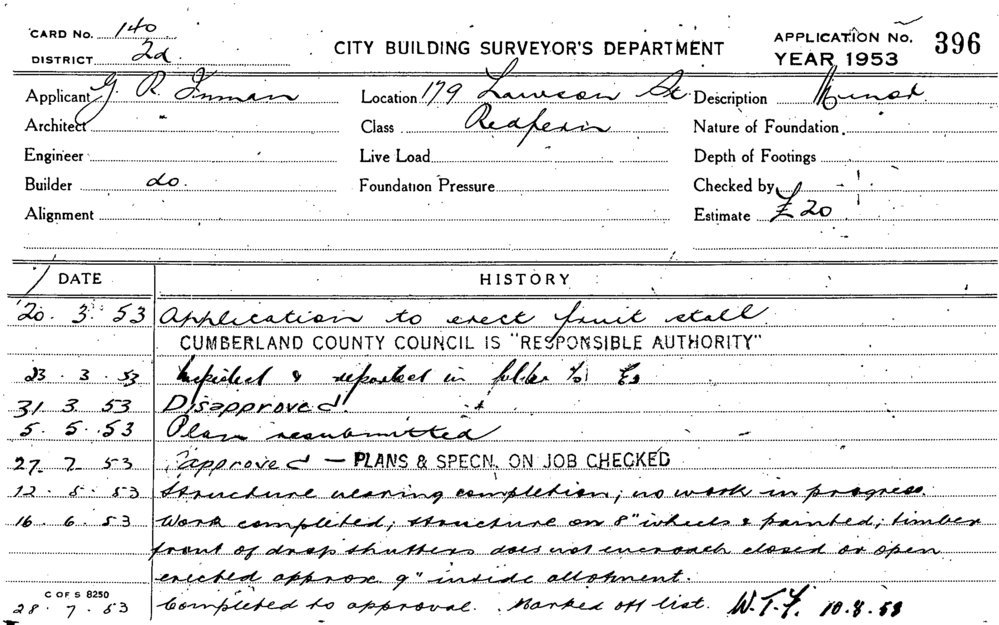 CARD No. 140
DISTRICT 2d
CITY BUILDING SURVEYOR'S DEPARTMENT
APPLICATION No. 396
YEAR 1953
Applicant G. R. Inman
Location 179 Lawson St
Description Minor
Architect "
Class Redfern
Nature of Foundation
Engineer
Live Load
Depth of Footings
Builder do.
Foundation Pressure
Checked by
Alignment
Estimate £20
DATE HISTORY
20. 3. 53 Application to erect fruit stall
CUMBERLAND COUNTY COUNCIL IS "RESPONSIBLE AUTHORITY"
23. 3. 53 Inspected & reported in folder
31. 3. 53 Disapproved
5. 5. 53 Plan resubmitted
27. 7. 53 approved – PLANS & SPECN. ON JOB CHECKED
12. 5. 53 Structure nearing completion; no work in progress.
16. 6. 53 Work completed; structure on 8" wheels & painted; timber
front of drop shutters does not encroach closed or open
erected approx. 9" inside allotment.
C OF S 8250
28. 7. 53 Completed to approval. Marked off list. W.T.F. 10.8.53